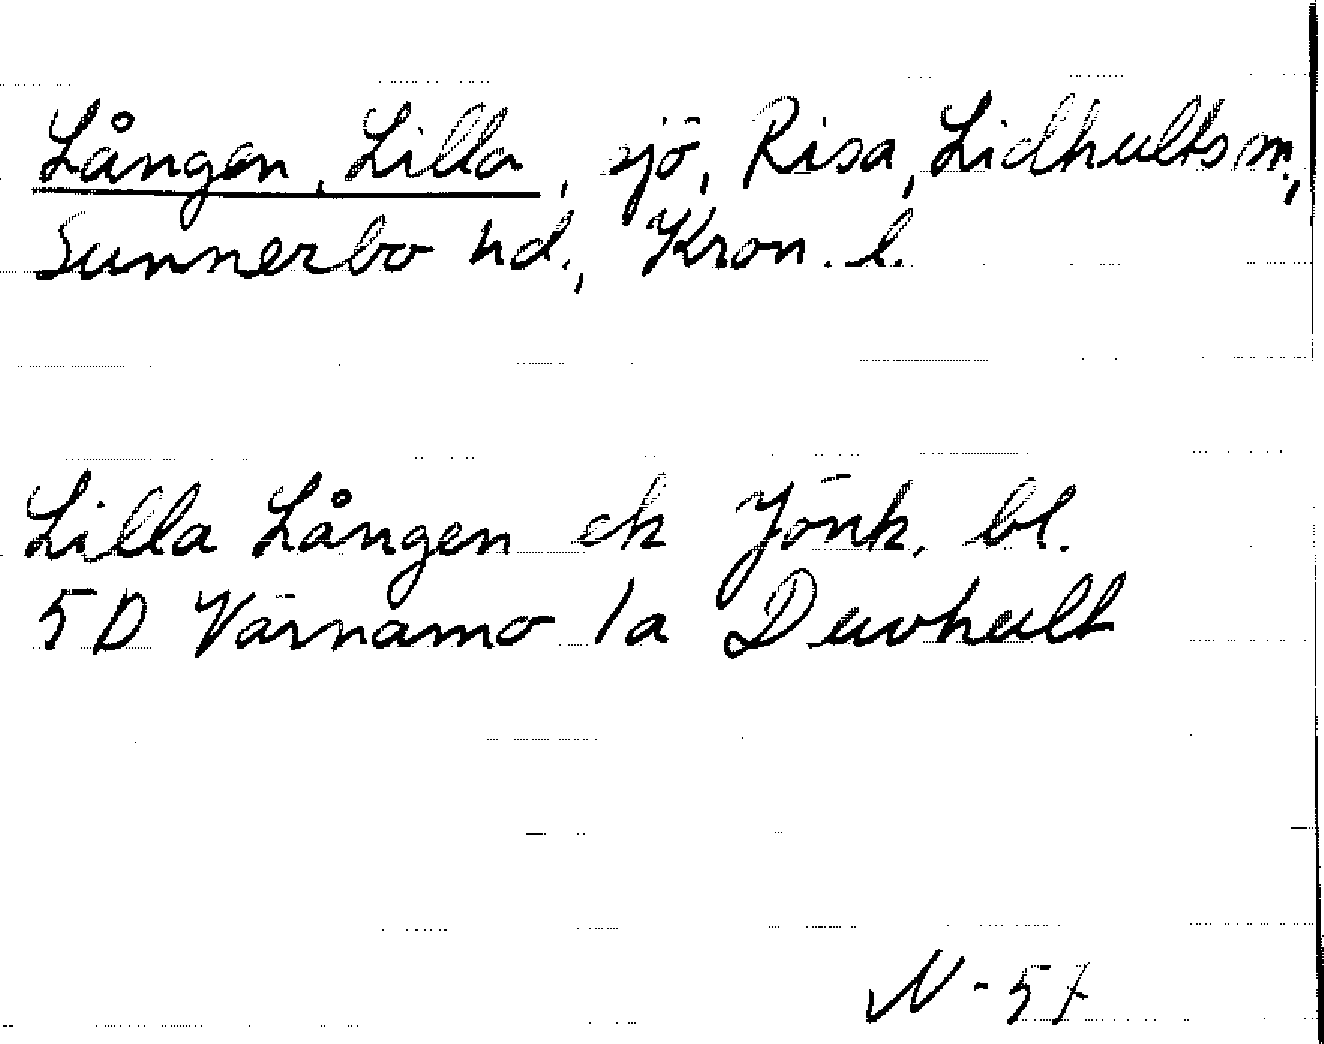 Lången, Lilla, sjö, Risa, Lidhults sn.,
Sunnerbo hd., Kron. l.
Lilla Lången ek Jönk. bl.
5D Värnamo 1a Duvhult
N-57